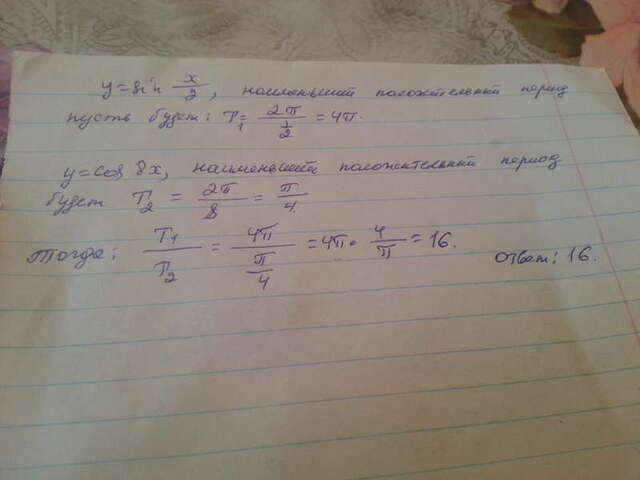 y = sin x/2, наименьший положительный период
пусть будет: T₁ = 2π/(1/2) = 4π.
y = cos 8x, наименьший положительный период
будет T₂ = 2π/8 = π/4.
Тогда: T₁/T₂ = 4π/(π/4) = 4π · 4/π = 16. Ответ: 16.